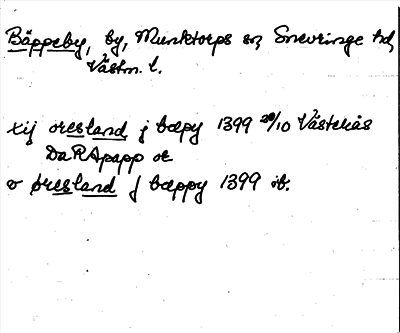 Bäppeby, by, Munktorps sn, Snevringe hd,
Västm. l.
xij øresland j bæpy 1399 20/10 Västerås
DaRApapp or
v øresland j bæppy 1399 ib.